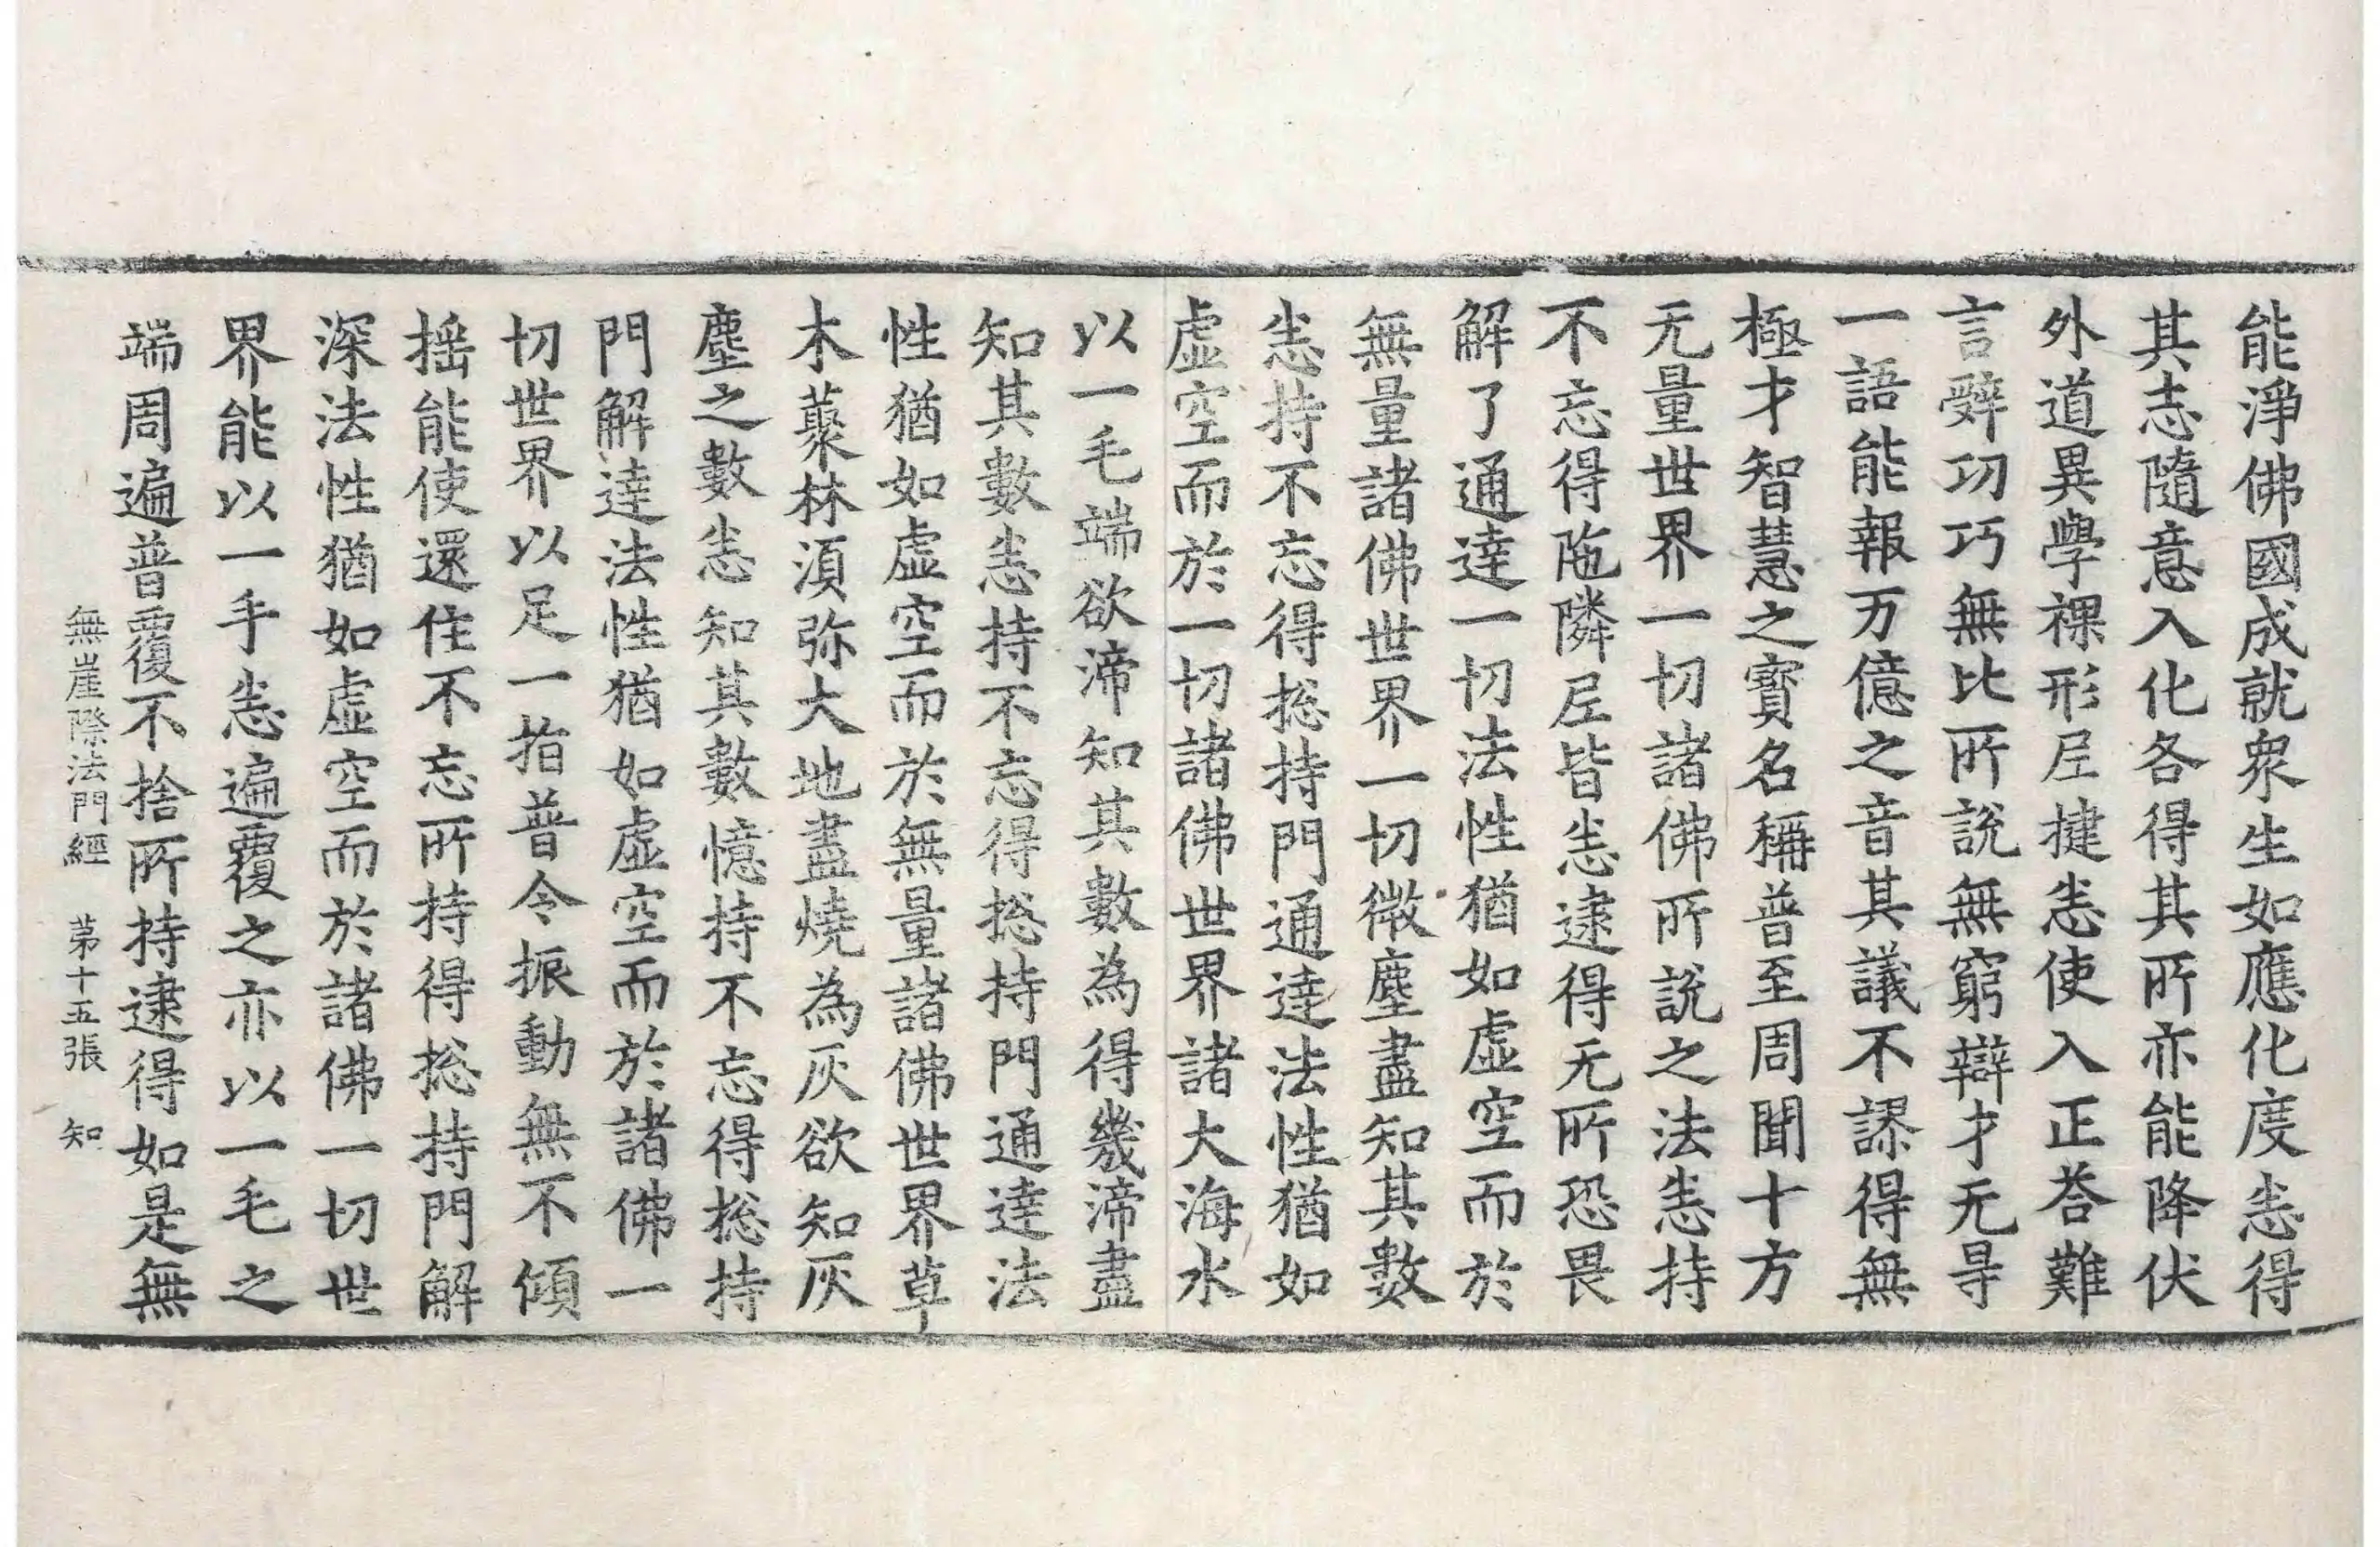 能淨佛國成就衆生如應化度悉得
其志隨意入化各得其所亦能降伏
外道異學裸形尼揵悉使入正荅難
言辞㓛巧無比所說無窮辯才无㝵
一語能報万億之音其議不謬得無
極才智慧之寶名稱普至周聞十方
无量世界一切諸佛所說之法悉持
不忘得陁隣尼皆悉逮得无所恐畏
解了通達一切法性猶如虛空而於
無量諸佛世界一切微塵盡知其數
悉持不忘得捴持門通達法性猶如
虛空而於一切諸佛世界諸大海水
以一毛端欲渧知其數為得幾渧盡
知其數悉持不忘得捴持門通達法
性猶如虛空而於無量諸佛世界草
木藂林湏弥大地盡燒為灰欲知灰
塵之數悉知其數憶持不忘得捴持
門解達法性猶如虛空而於諸佛一
切世界以足一指普令振動無不傾
揺能使還住不忘所持得捴持門解
深法性猶如虛空而於諸佛一切世
界能以一手悉遍覆之亦以一毛之
端周遍普覆不捨所持逮得如是無
無崖際法門經 苐十五張 知